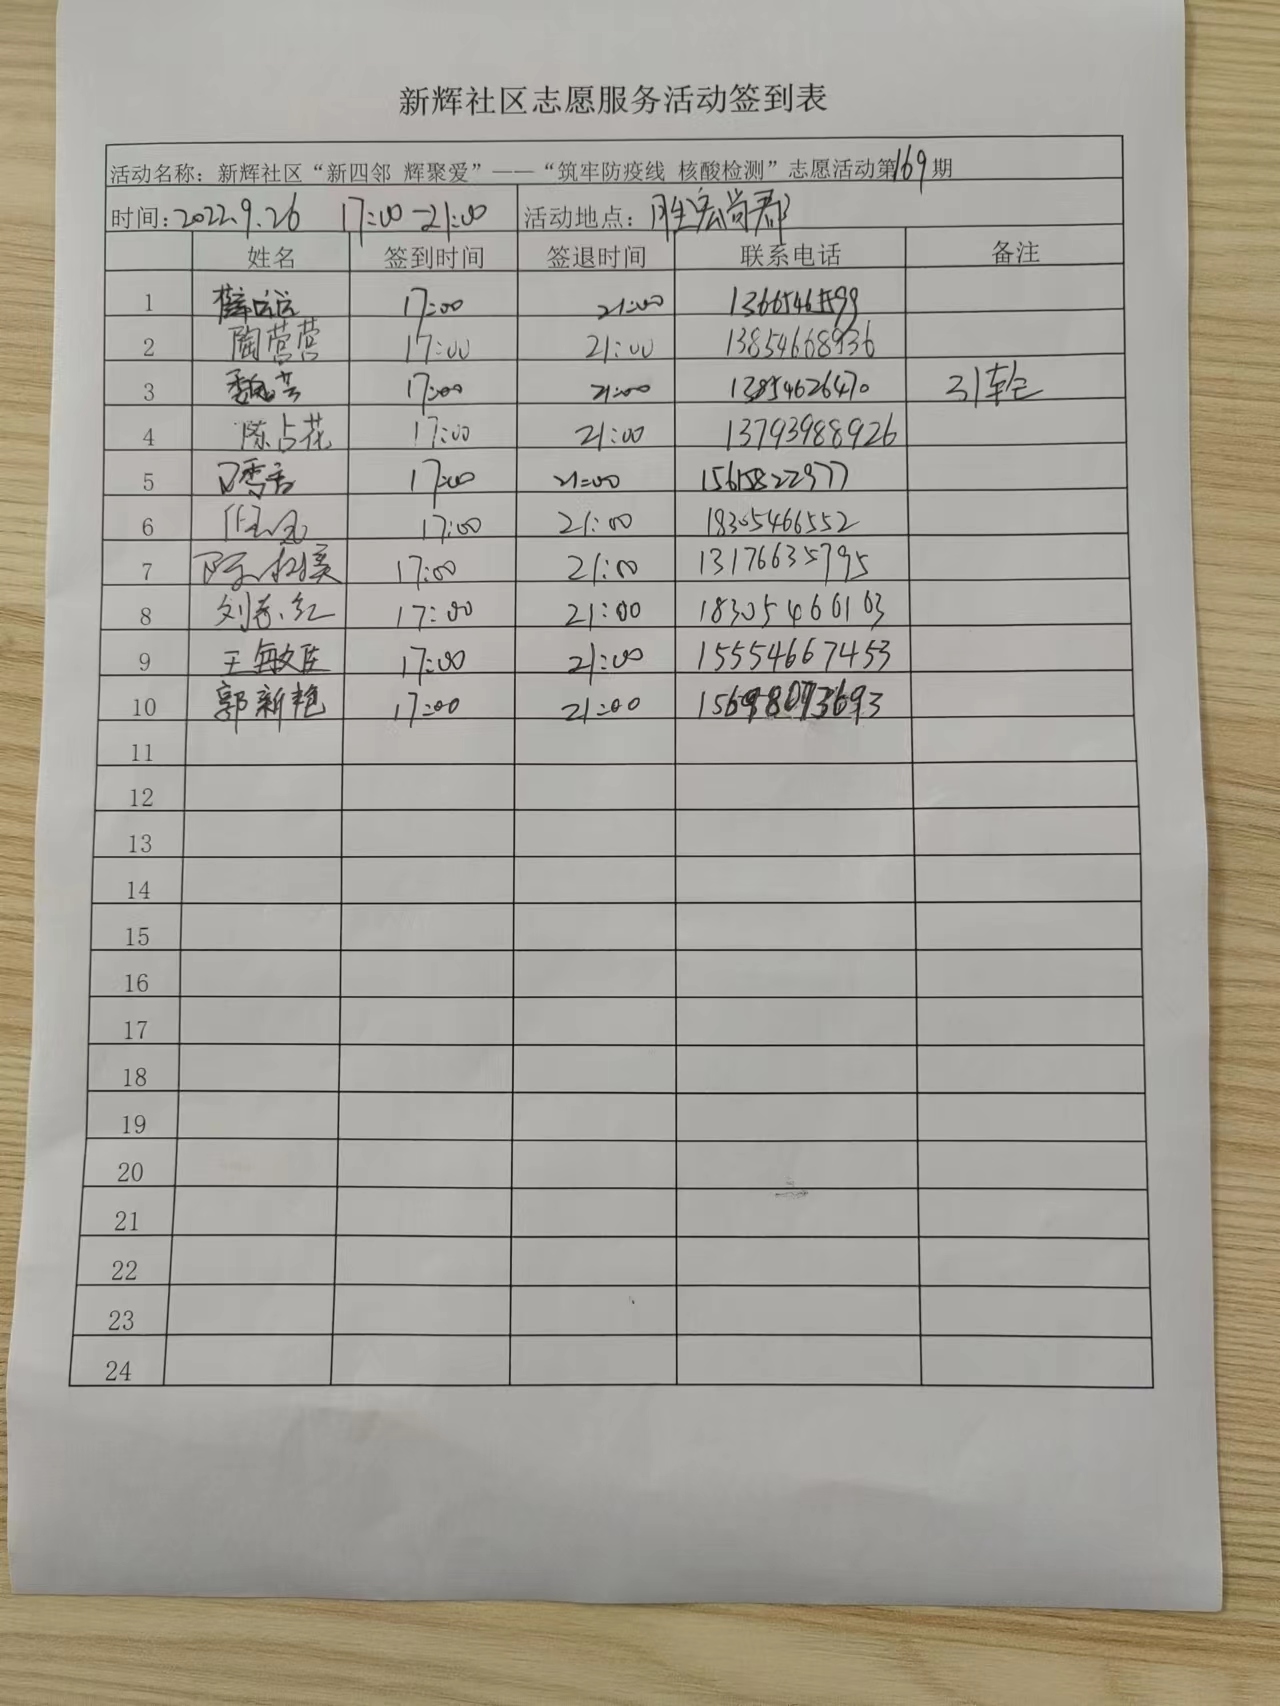 新辉社区志愿服务活动签到表
活动名称：新辉社区“新四邻 辉聚爱”——“筑牢防疫线 核酸检测”志愿活动第169期
时间：2022.9.26 17:00-21:00 活动地点：胜宏尚都
姓名 签到时间 签退时间 联系电话 备注
1 17:00 21:00
2 陶营营 17:00 21:00 13854668936
3 魏芸 17:00 21:00 13854626470
4 陈占花 17:00 21:00 13793988926
5 17:00 21:00 15615822977
6 17:00 21:00 18305466552
7 17:00 21:00 13176635795
8 17:00 21:00 18305466103
9 王敏 17:00 21:00 15554667453
10 郭新艳 17:00 21:00 15698073693
11
12
13
14
15
16
17
18
19
20
21
22
23
24